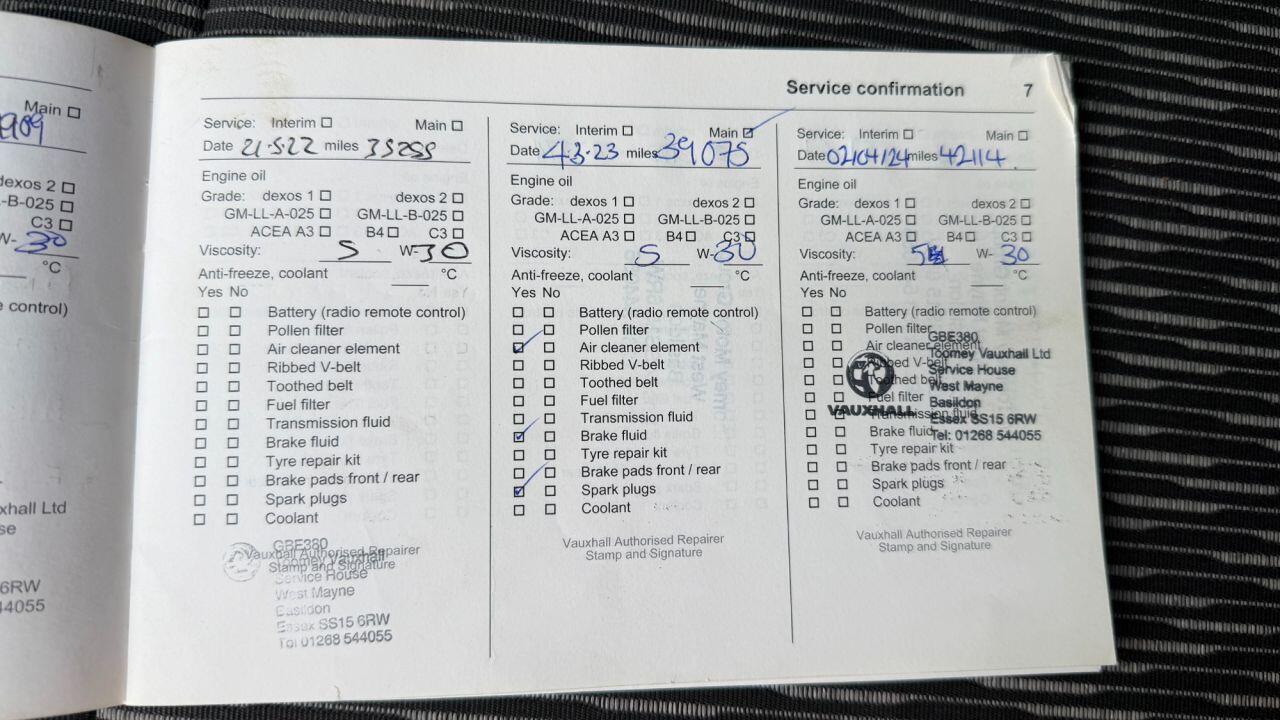 Main
1909
dexos 2
L-B-025
C3
W- 30
°C
e control)
xhall Ltd
se
6RW
44055
Service confirmation 7
Service: Interim Main
Date 21.5.22 miles 35255
Engine oil
Grade: dexos 1 dexos 2
GM-LL-A-025 GM-LL-B-025
ACEA A3 B4 C3
Viscosity: 5 W-30
Anti-freeze, coolant °C
Yes No
Battery (radio remote control)
Pollen filter
Air cleaner element
Ribbed V-belt
Toothed belt
Fuel filter
Transmission fluid
Brake fluid
Tyre repair kit
Brake pads front / rear
Spark plugs
Coolant
Vauxhall Authorised Repairer
Stamp and Signature
GBE380
Toomey Vauxhall
Service House
West Mayne
Basildon
Essex SS15 6RW
Tel 01268 544055
Service: Interim Main
Date 4.3.23 miles 39075
Engine oil
Grade: dexos 1 dexos 2
GM-LL-A-025 GM-LL-B-025
ACEA A3 B4 C3
Viscosity: 5 W-30
Anti-freeze, coolant °C
Yes No
Battery (radio remote control)
Pollen filter
Air cleaner element
Ribbed V-belt
Toothed belt
Fuel filter
Transmission fluid
Brake fluid
Tyre repair kit
Brake pads front / rear
Spark plugs
Coolant
Vauxhall Authorised Repairer
Stamp and Signature
Service: Interim Main
Date 02/04/24 miles 42114
Engine oil
Grade: dexos 1 dexos 2
GM-LL-A-025 GM-LL-B-025
ACEA A3 B4 C3
Viscosity: 5 W- 30
Anti-freeze, coolant °C
Yes No
Battery (radio remote control)
Pollen filter
Air cleaner element
Ribbed V-belt
Toothed belt
Fuel filter
Transmission fluid
Brake fluid
Tyre repair kit
Brake pads front / rear
Spark plugs
Coolant
VAUXHALL
GBE380
Toomey Vauxhall Ltd
Service House
West Mayne
Basildon
Essex SS15 6RW
Tel: 01268 544055
Vauxhall Authorised Repairer
Stamp and Signature